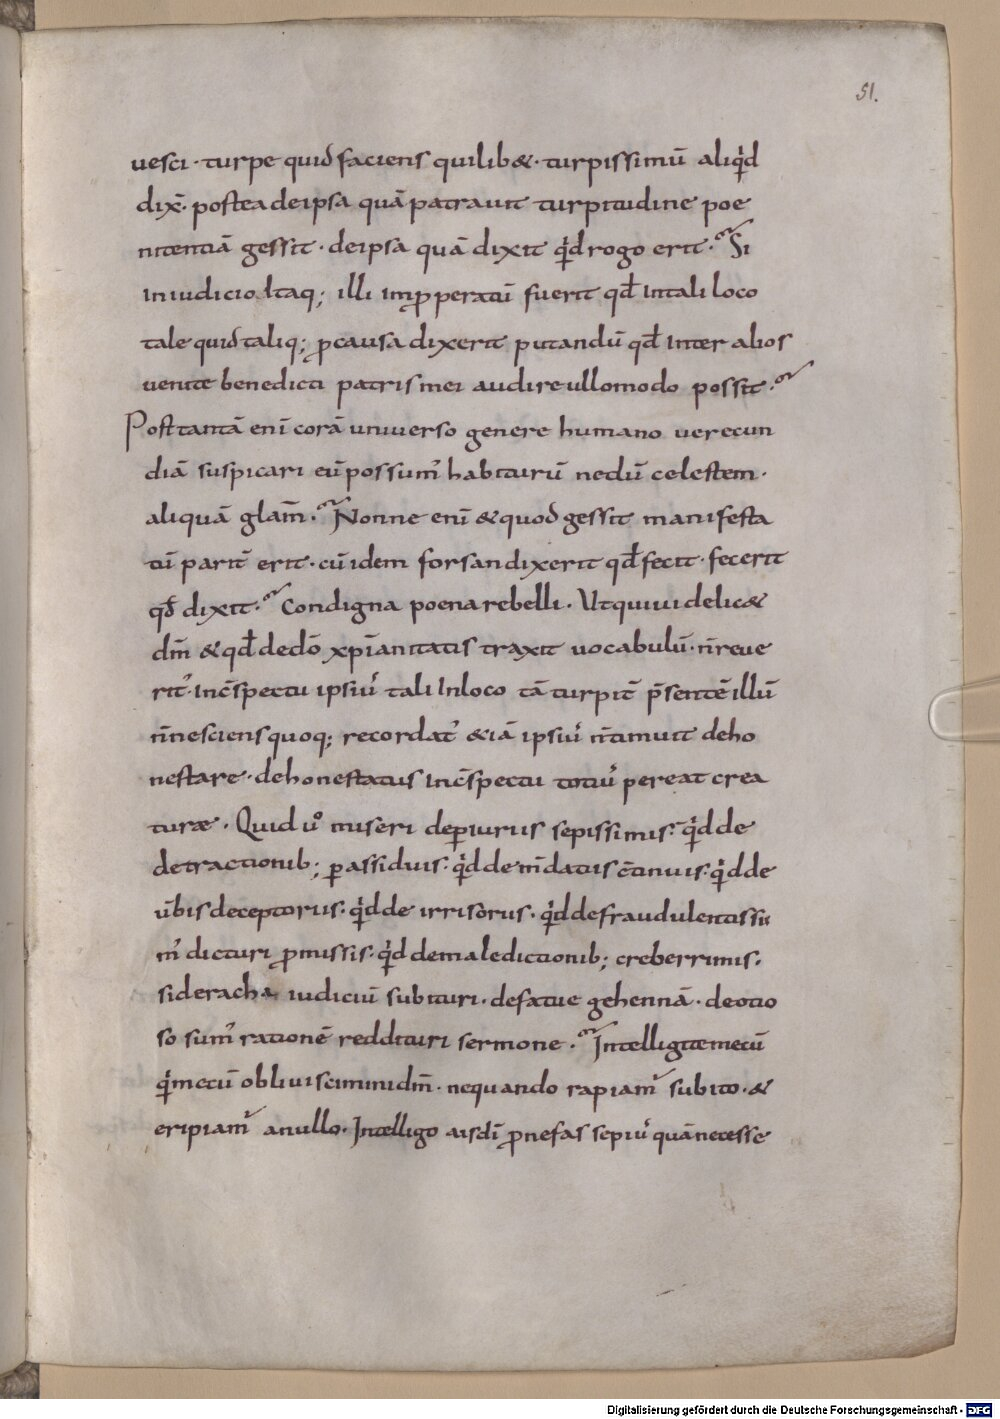 51.
uesci · turpe quid faciens quilib& · turpissimū aliqd
dix̄ · postea deipsa quā patrauit turpitudine poe
nitentiā gessit · deipsa quā dixit qd rogo erit · Si
in iudicio itaq; illi imꝓperatū fuerit qđ intali loco
tale quid taliq; ꝓ causa dixerit putandū qđ inter alios
uenite benedicti patris mei audire ullomodo possit ·
Post tantā enī corā uniuerso genere humano uerecun
diā suspicari eū possum᾽ habiturū nedū celestem ·
aliquā glam̄ · Nonne enī & quod gessit manifesta
tū parit̄ erit · cū idem forsan dixerit qđ fecit · fecerit
qđ dixit · Condigna poena rebelli · Ut qui uidelic&
dm̄ & qđ dedō xp̄ianitatis traxit uocabulū · n̄ reue
rit᾽ · inc̄spectu ipsiu᾽ tali inloco tā turpit̄ p̄sentē illū
n̄ nesciens quoq; recordat᾽ & iā ipsiu᾽ n̄ timuit deho
nestare · dehonestatus inc̄spectu totiu᾽ pereat crea
turæ · Quid ůo miseri deꝑiuriis sepissimis · qd de
detractionib; ꝑ assiduis · qd de m̄datiis c̄tinuis · qd de
ūbis deceptoriis · qd de irrisoriis · qd de fraudulentissi
m᾽ dicturi ꝓmissis · qd de maledictionib; creberrimis ·
sideracha iudiciū subituri · defatue gehennā · deotio
so sum᾽ rationē reddituri sermone · Intelligite mecū
qi mecū obliuiscimini dm̄ · nequando rapiam᾽ subito · &
eripiam᾽ anullo · Intelligo aisdī ꝓ nefas sepiu᾽ quā necesse
Digitalisierung gefördert durch die Deutsche Forschungsgemeinschaft - DFG